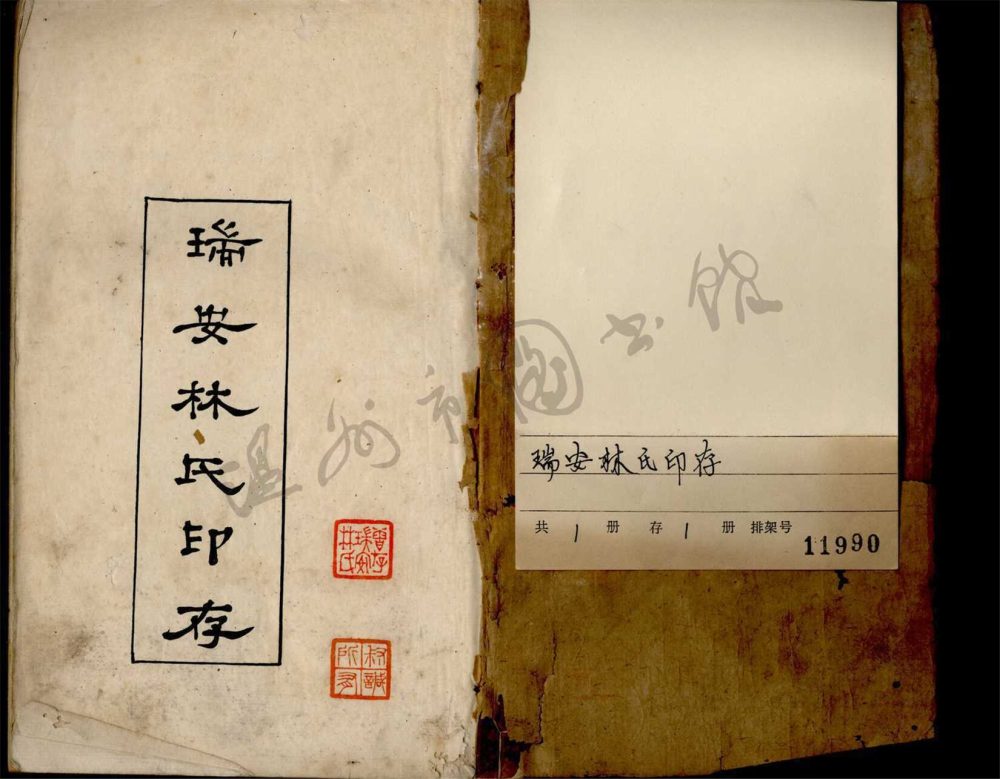 瑞安林氏印存
曾存
瑞安
林氏
温州市图书馆
瑞安林氏印存
共 1 册 存 1 册 排架号
11990